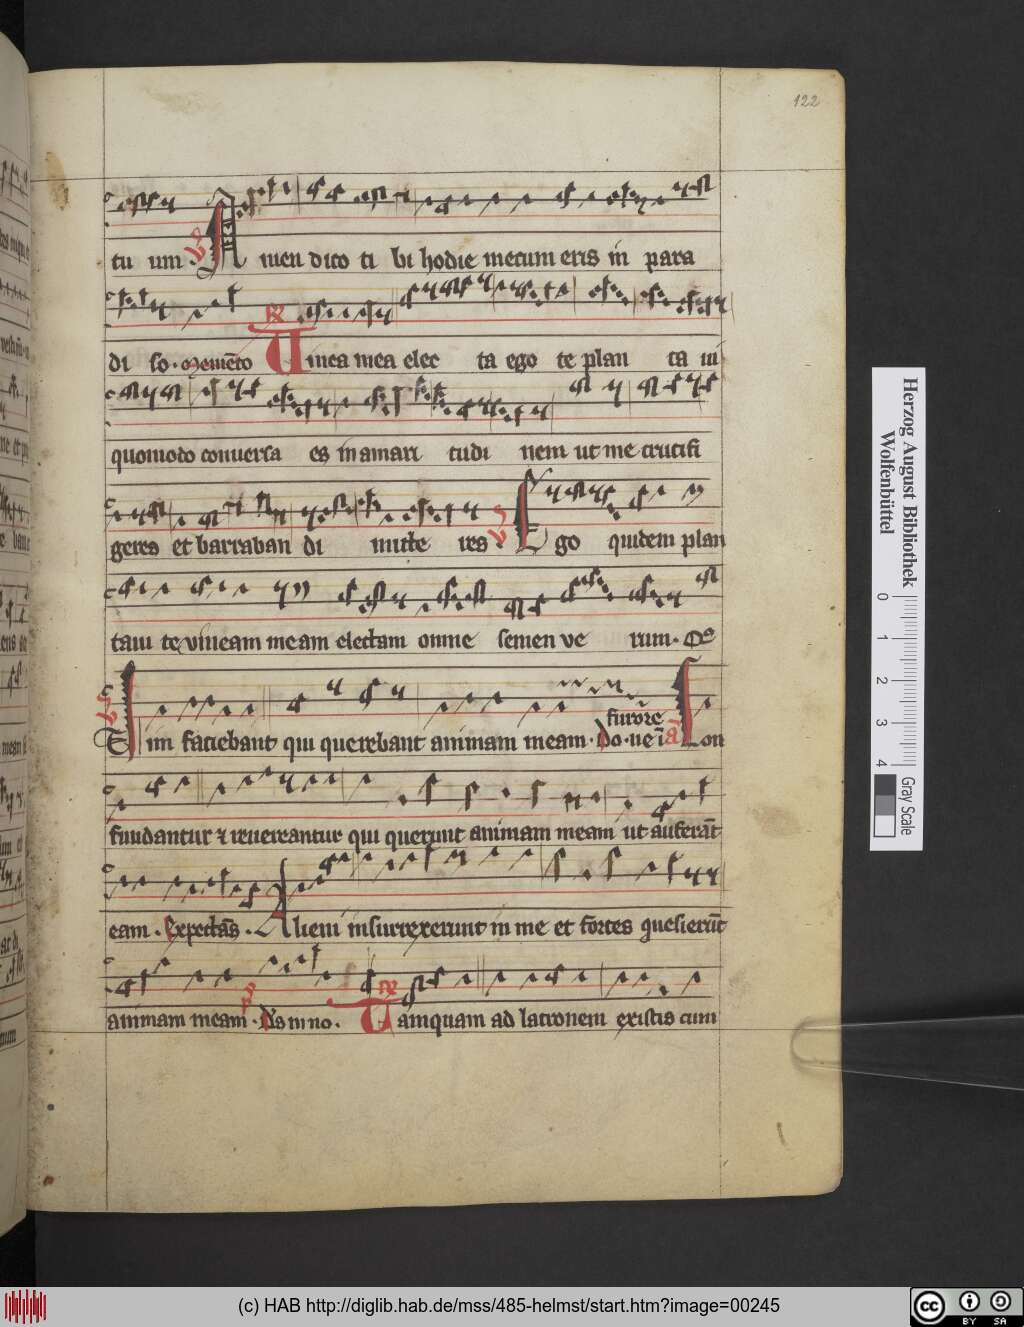 122
tu um. Amen dico ti bi hodie mecum eris in para
di so. Memēto Vinea mea elec ta ego te plan ta ui
quomodo conuersa es in amari tudi nem ut me crucifi
geres et barraban di mitte res. Ego quidem plan
taui te vineam meam electam omne semen ve rum.
Vim faciebant qui querebant animam meam.
furore
Con
fundantur ⁊ reuereantur qui querunt animam meam ut auferāt
eam. Expectās. Alieni insurrexerunt in me et fortes quesierūt
animam meam. Tamquam ad latronem existis cum
Herzog August Bibliothek
Wolfenbüttel
0 1 2 3 4
Gray Scale
(c) HAB http://diglib.hab.de/mss/485-helmst/start.htm?image=00245
cc BY SA